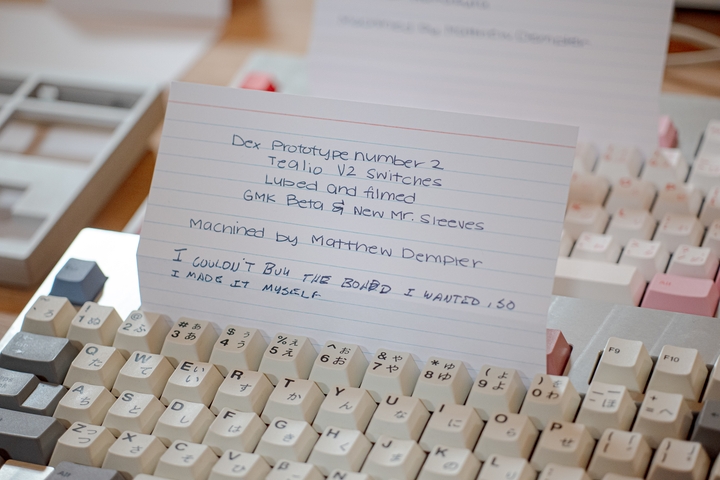 Dex Prototype number 2
Tealio V2 Switches
Lubed and filmed
GMK Beta & New Mr. Sleeves
Machined by Matthew Dempier
I COULDN'T BUY THE BOARD I WANTED, SO
I MADE IT MYSELF
F9 F10
# 3 あ $ 4 う % 5 え ^ 6 お & 7 や * 8 ゆ ( 9 よ ) 0 わ
Q た W て E い R す T か Y ん U な I に O ら P せ
A ち S と D し F は G き H く J ま K の L
Z つ X さ C そ V ひ B N